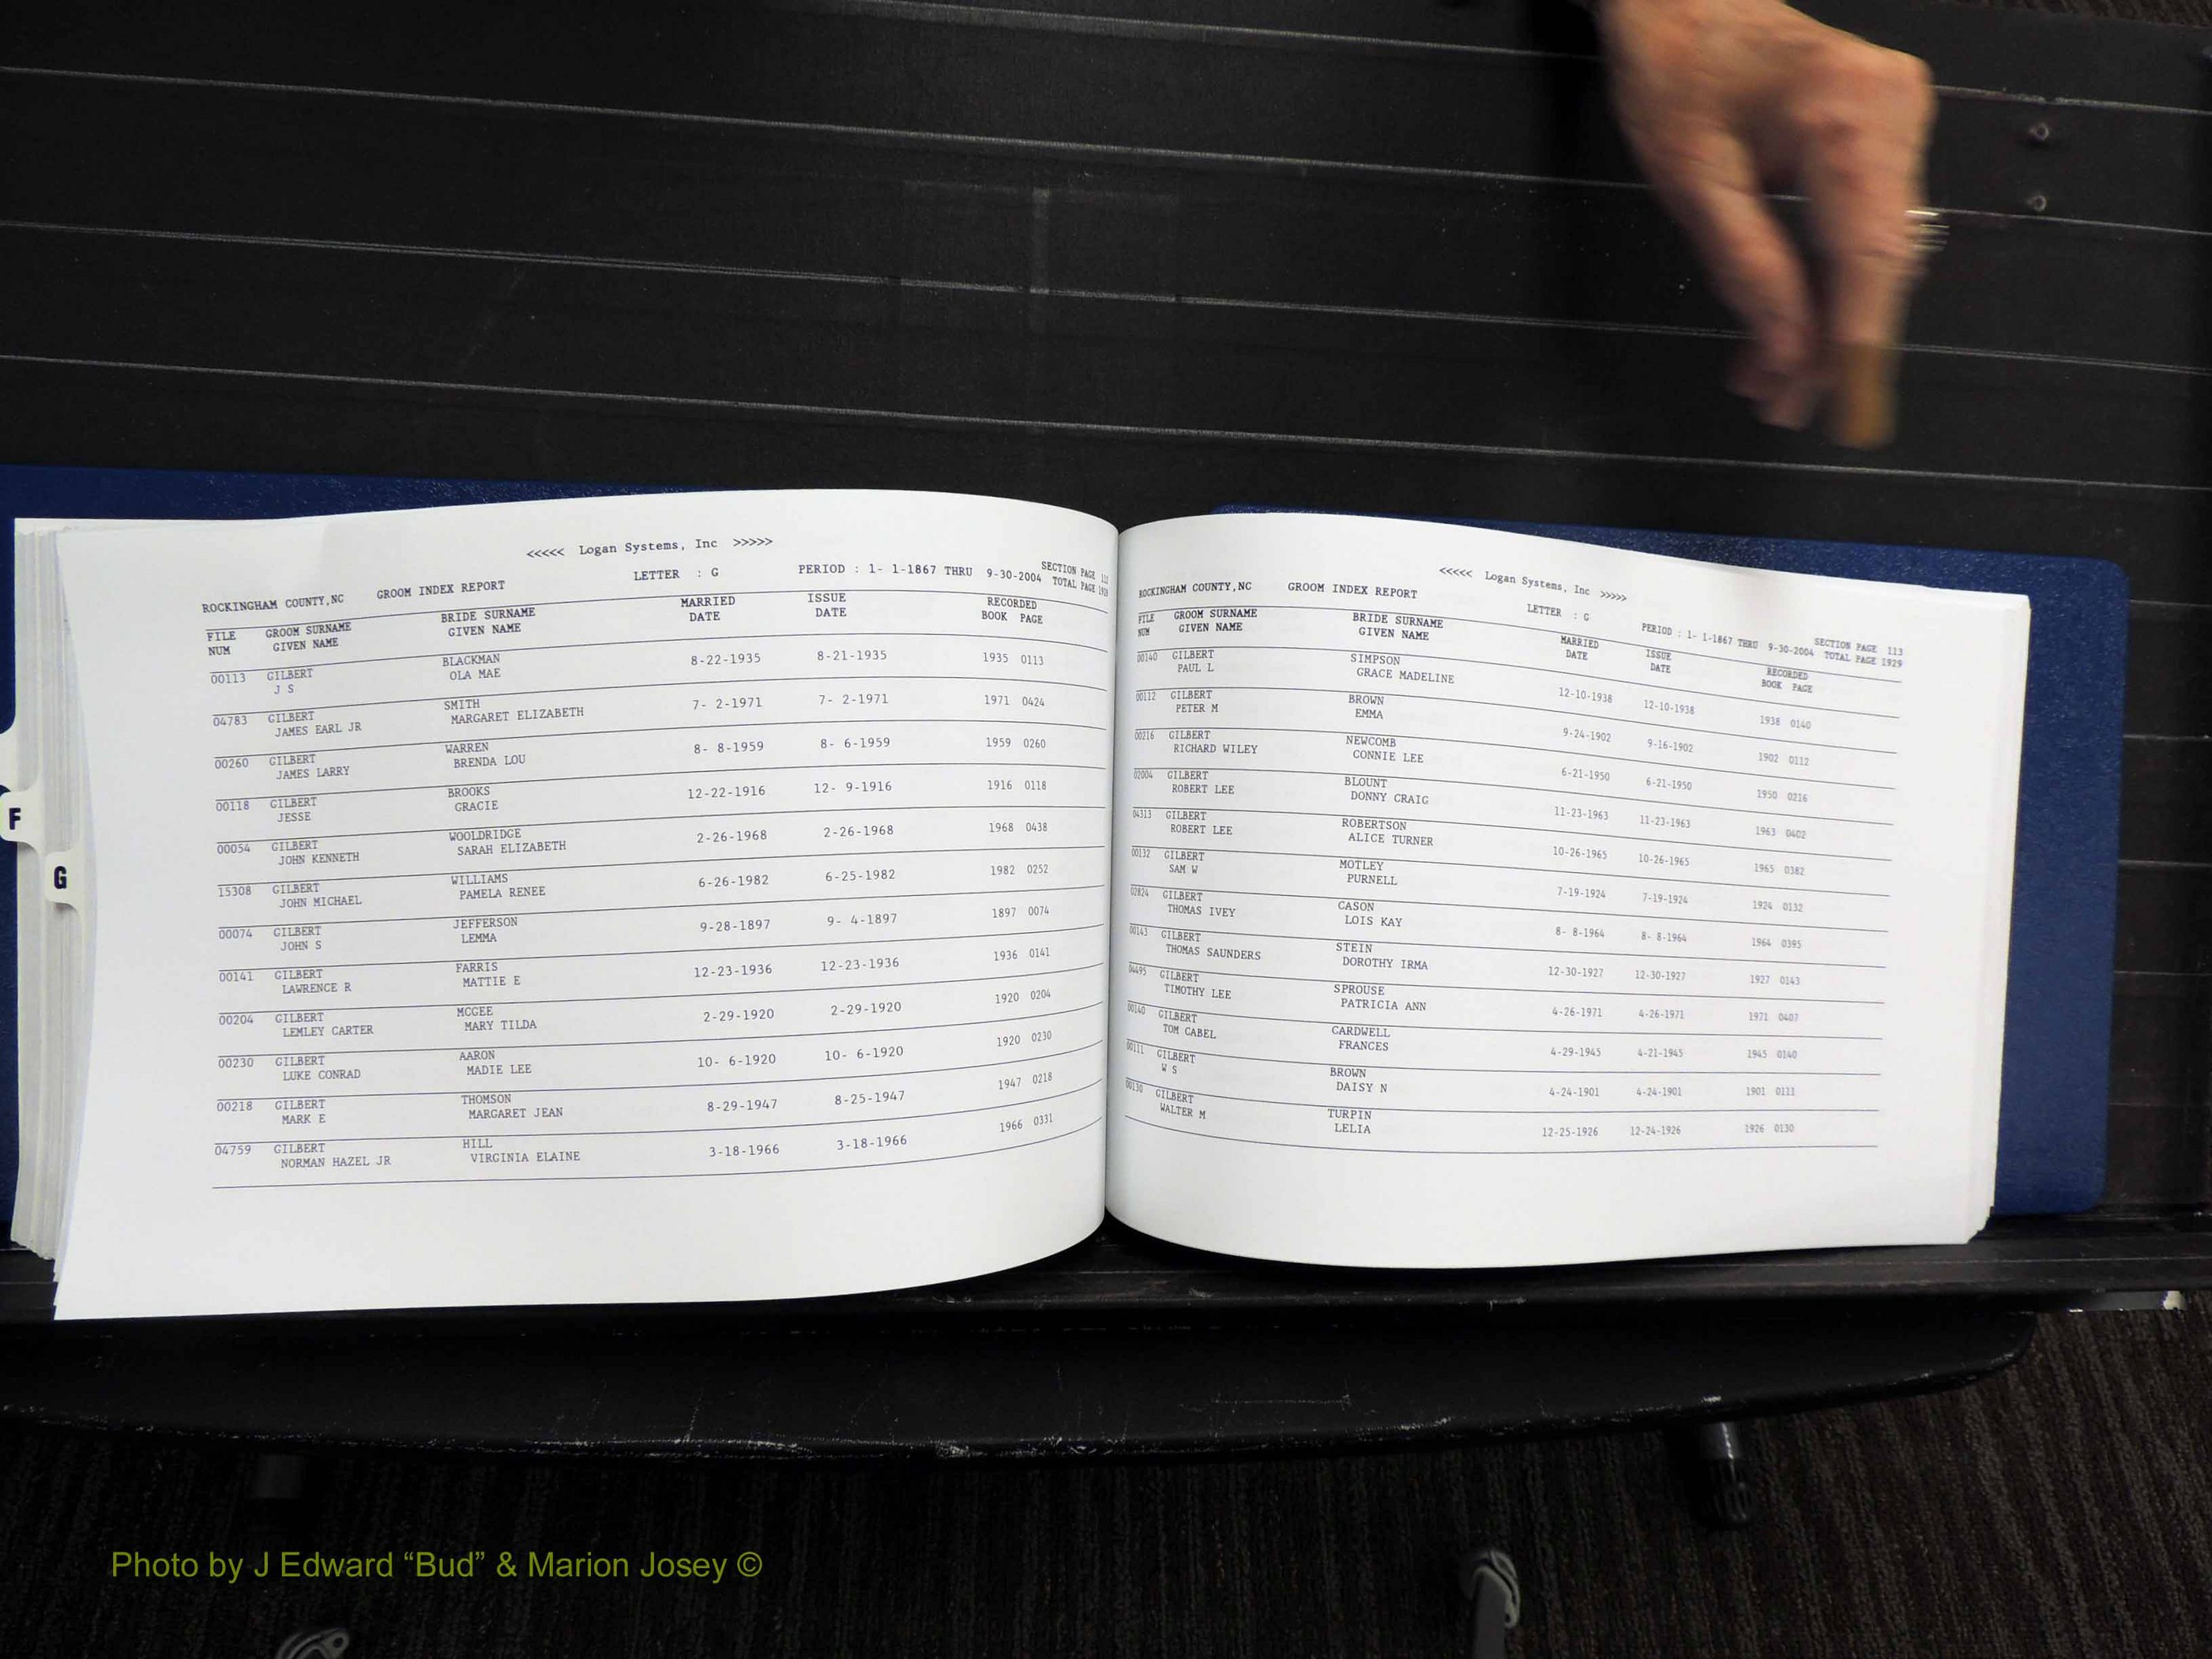 <<<<< Logan Systems, Inc >>>>>
ROCKINGHAM COUNTY,NC GROOM INDEX REPORT LETTER : G PERIOD : 1- 1-1867 THRU 9-30-2004 SECTION PAGE
TOTAL PAGE
FILE GROOM SURNAME BRIDE SURNAME MARRIED ISSUE RECORDED
NUM GIVEN NAME GIVEN NAME DATE DATE BOOK PAGE
00113 GILBERT BLACKMAN 8-22-1935 8-21-1935 1935 0113
J S OLA MAE
04783 GILBERT SMITH 7- 2-1971 7- 2-1971 1971 0424
JAMES EARL JR MARGARET ELIZABETH
00260 GILBERT WARREN 8- 8-1959 8- 6-1959 1959 0260
JAMES LARRY BRENDA LOU
00118 GILBERT BROOKS 12-22-1916 12- 9-1916 1916 0118
JESSE GRACIE
00054 GILBERT WOOLDRIDGE 2-26-1968 2-26-1968 1968 0438
JOHN KENNETH SARAH ELIZABETH
15308 GILBERT WILLIAMS 6-26-1982 6-25-1982 1982 0252
JOHN MICHAEL PAMELA RENEE
00074 GILBERT JEFFERSON 9-28-1897 9- 4-1897 1897 0074
JOHN S LEMMA
00141 GILBERT FARRIS 12-23-1936 12-23-1936 1936 0141
LAWRENCE R MATTIE E
00204 GILBERT MCGEE 2-29-1920 2-29-1920 1920 0204
LEMLEY CARTER MARY TILDA
00230 GILBERT AARON 10- 6-1920 10- 6-1920 1920 0230
LUKE CONRAD MADIE LEE
00218 GILBERT THOMSON 8-29-1947 8-25-1947 1947 0218
MARK E MARGARET JEAN
04759 GILBERT HILL 3-18-1966 3-18-1966 1966 0331
NORMAN HAZEL JR VIRGINIA ELAINE
F
G
<<<<< Logan Systems, Inc >>>>>
ROCKINGHAM COUNTY,NC GROOM INDEX REPORT LETTER : G PERIOD : 1- 1-1867 THRU 9-30-2004 SECTION PAGE 113
TOTAL PAGE 1929
FILE GROOM SURNAME BRIDE SURNAME MARRIED ISSUE RECORDED
NUM GIVEN NAME GIVEN NAME DATE DATE BOOK PAGE
00140 GILBERT SIMPSON 12-10-1938 12-10-1938 1938 0140
PAUL L GRACE MADELINE
00112 GILBERT BROWN 9-24-1902 9-16-1902 1902 0112
PETER M EMMA
00216 GILBERT NEWCOMB 6-21-1950 6-21-1950 1950 0216
RICHARD WILEY CONNIE LEE
02004 GILBERT BLOUNT 11-23-1963 11-23-1963 1963 0402
ROBERT LEE DONNY CRAIG
04313 GILBERT ROBERTSON 10-26-1965 10-26-1965 1965 0382
ROBERT LEE ALICE TURNER
00132 GILBERT MOTLEY 7-19-1924 7-19-1924 1924 0132
SAM W PURNELL
02824 GILBERT CASON 8- 8-1964 8- 8-1964 1964 0395
THOMAS IVEY LOIS KAY
00143 GILBERT STEIN 12-30-1927 12-30-1927 1927 0143
THOMAS SAUNDERS DOROTHY IRMA
04495 GILBERT SPROUSE 4-26-1971 4-26-1971 1971 0407
TIMOTHY LEE PATRICIA ANN
00140 GILBERT CARDWELL 4-29-1945 4-21-1945 1945 0140
TOM CABEL FRANCES
00111 GILBERT BROWN 4-24-1901 4-24-1901 1901 0111
W S DAISY N
00130 GILBERT TURPIN 12-25-1926 12-24-1926 1926 0130
WALTER M LELIA
Photo by J Edward “Bud” & Marion Josey ©